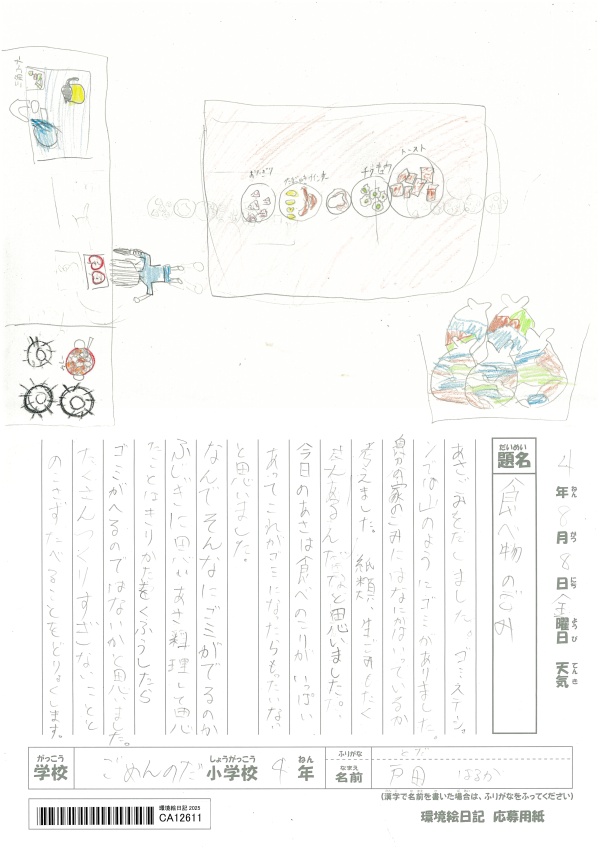 ごみばこ
おにぎり
たまごやきウインナー
トースト
4年8月8日金曜日 天気
ねん がつ にち ようび てんき
だいめい
題名 食べ物のごみ
あさごみをだしました。ゴミステイショ
ンでは山のようにゴミがありました。
自分の家のごみにはなにがはいっているか
考えました。紙類、生ごみもたく
さんあるんだなと思いました。
今日のあさは食べのこりがいっぱい
あってこれがゴミになったらもったいない
と思いました。
なんでそんなにゴミがでるのか
ふしぎに思いあさ料理して思っ
たことはきりかたをくふうしたら
ゴミがへるのではないかと思いました。
たくさんつくりすぎないことと
のこさずたべることをどりょくします。
がっこう しょうがっこう ねん
学校 ごめんのだ 小学校 4年
ふりがな とだ
なまえ
名前 戸田 はるか
(漢字で名前を書いた場合は、ふりがなをふってください)
環境絵日記 応募用紙
環境絵日記 2025
CA12611